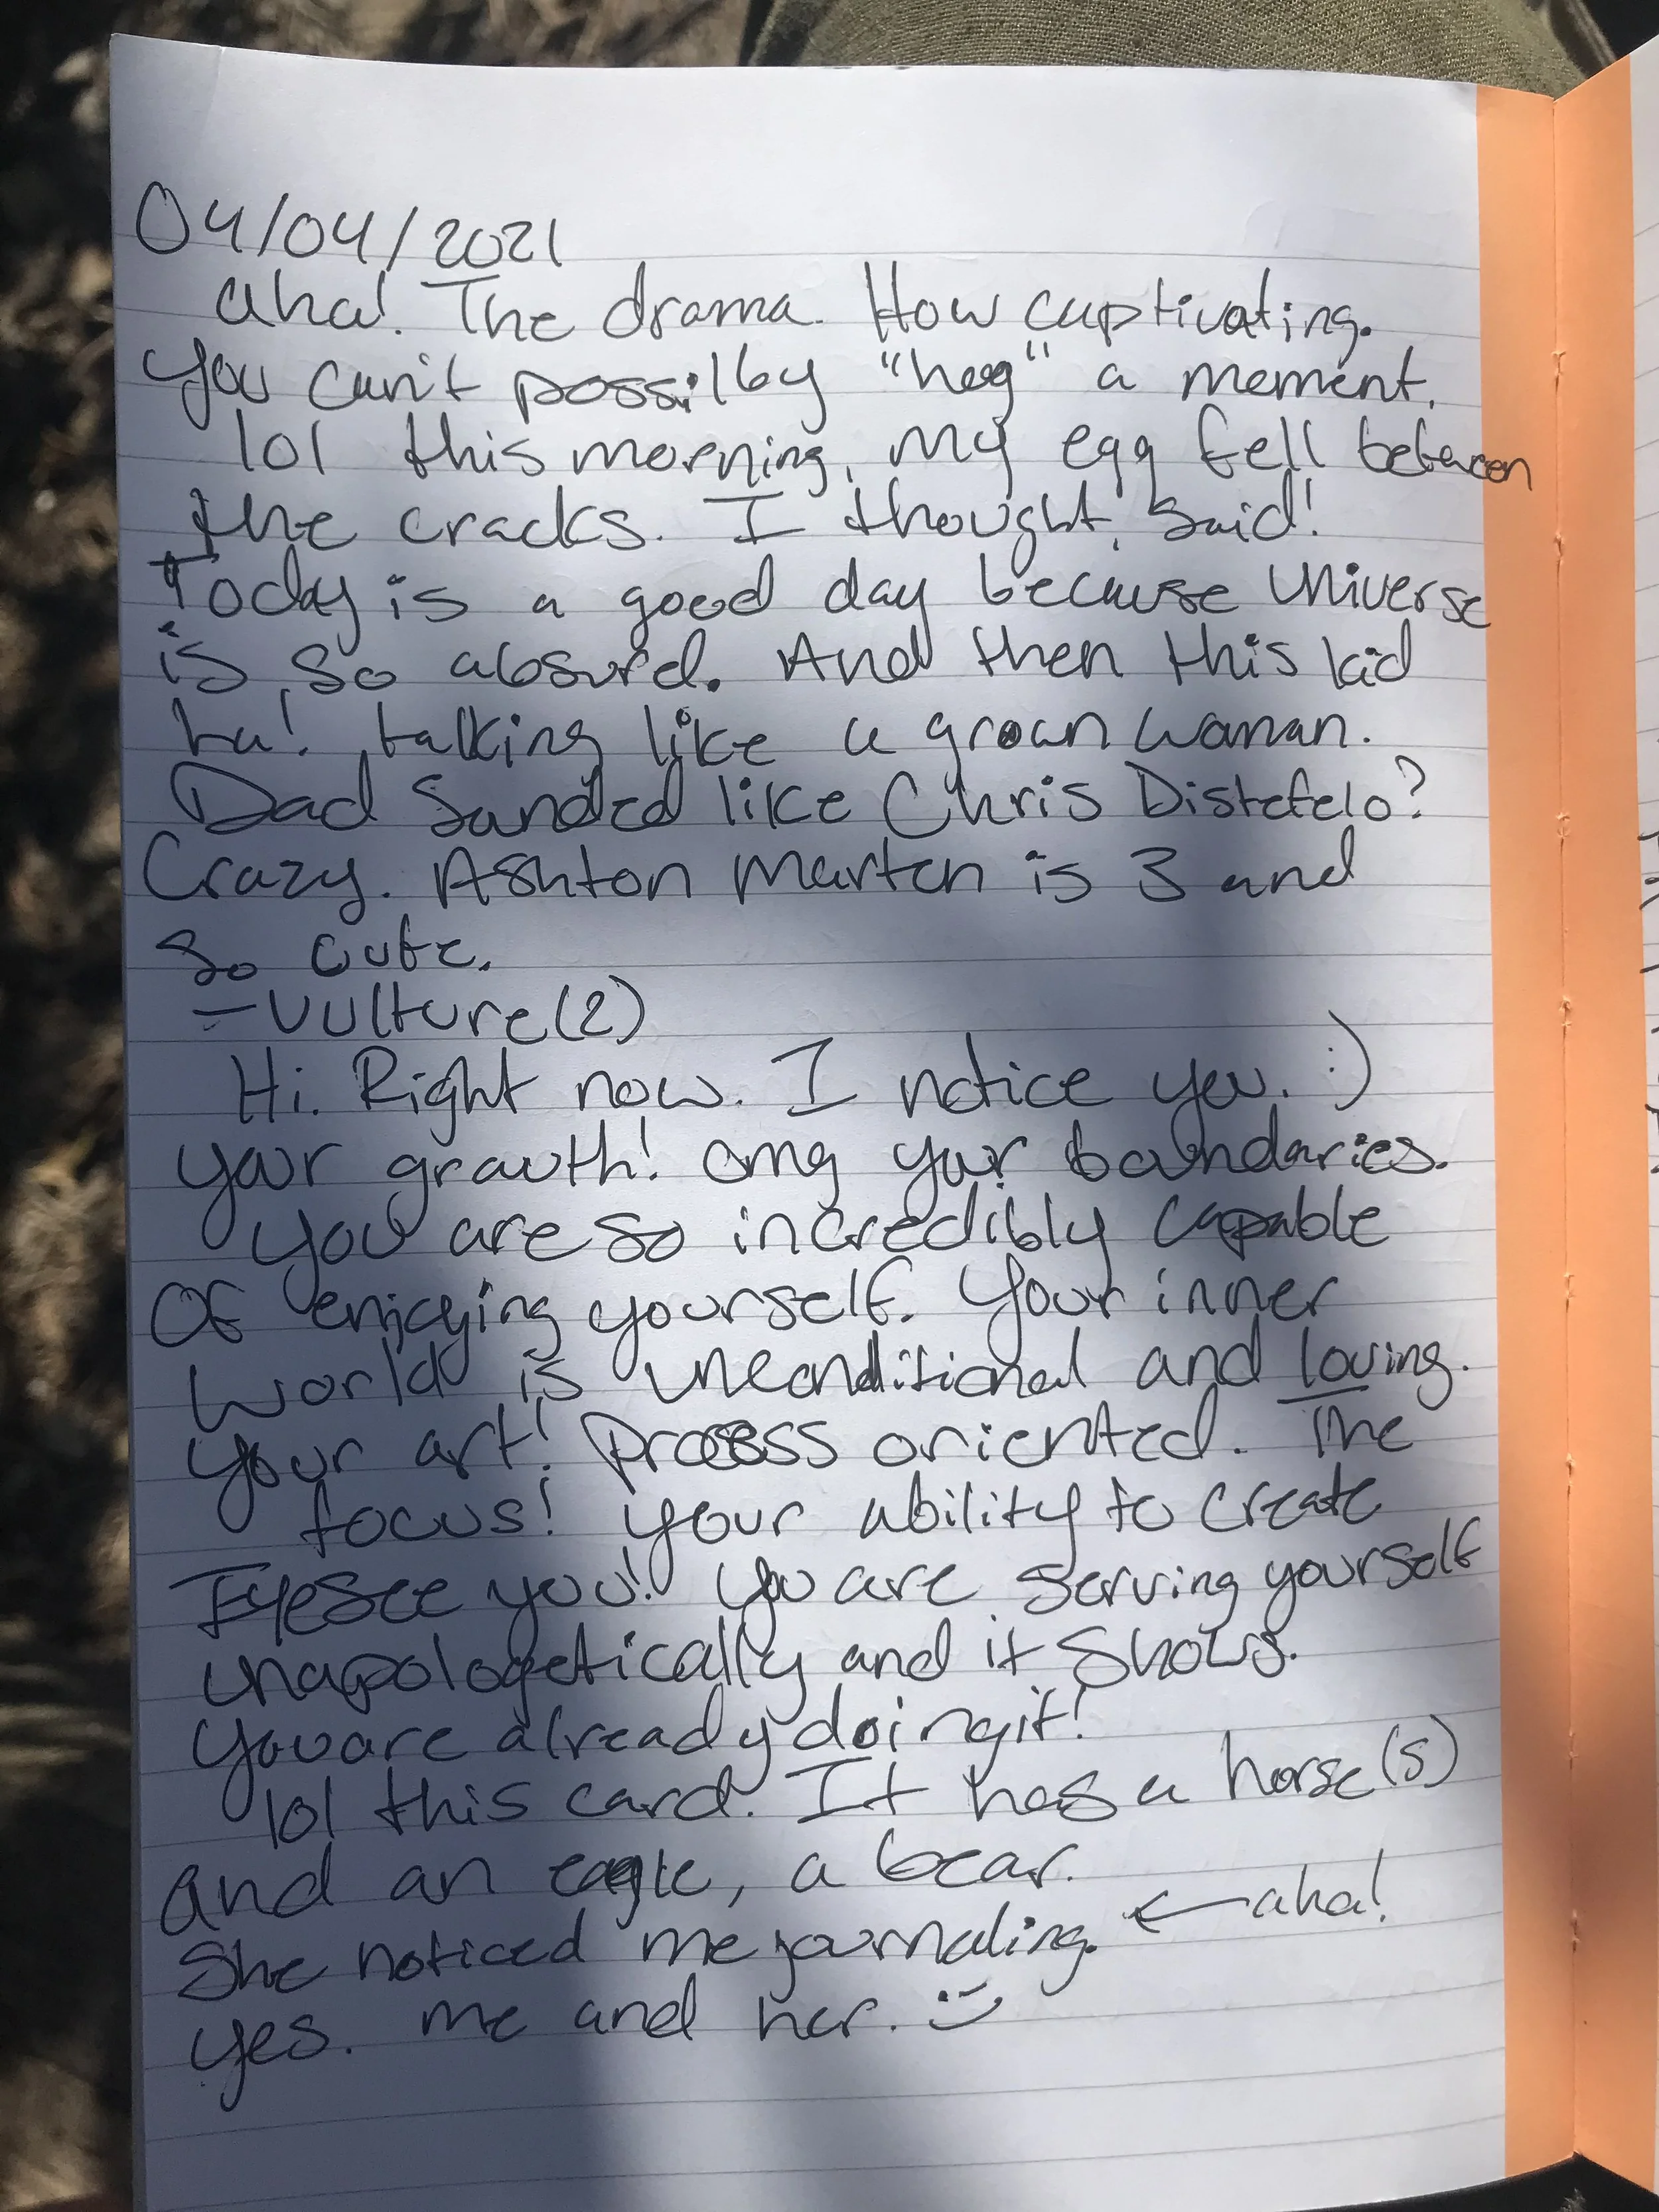 04/04/2021
aha! The drama. How captivating.
You can't possilby "hog" a moment.
lol this morning, my egg fell between
the cracks. I thought, said!
Today is a good day because Universe
is so absurd. And then this kid
ha! talking like a grown woman.
Dad Sunded like Chris Distefelo?
Crazy. Ashton Marten is 3 and
so cute.
- Vulture (2)
Hi. Right now. I notice you. :)
your growth! omg your boundaries.
You are so incredibly capable
Of enjoying yourself. Your inner
World is unconditional and loving.
Your art! Process oriented. The
focus! Your ability to create
EyeSee you! You are serving yourself
unapologetically and it shows.
You are already doing it!
lol this card. It has a horse(s)
and an eagle, a bear.
She noticed me journaling. ← aha!
yes. me and her. :)